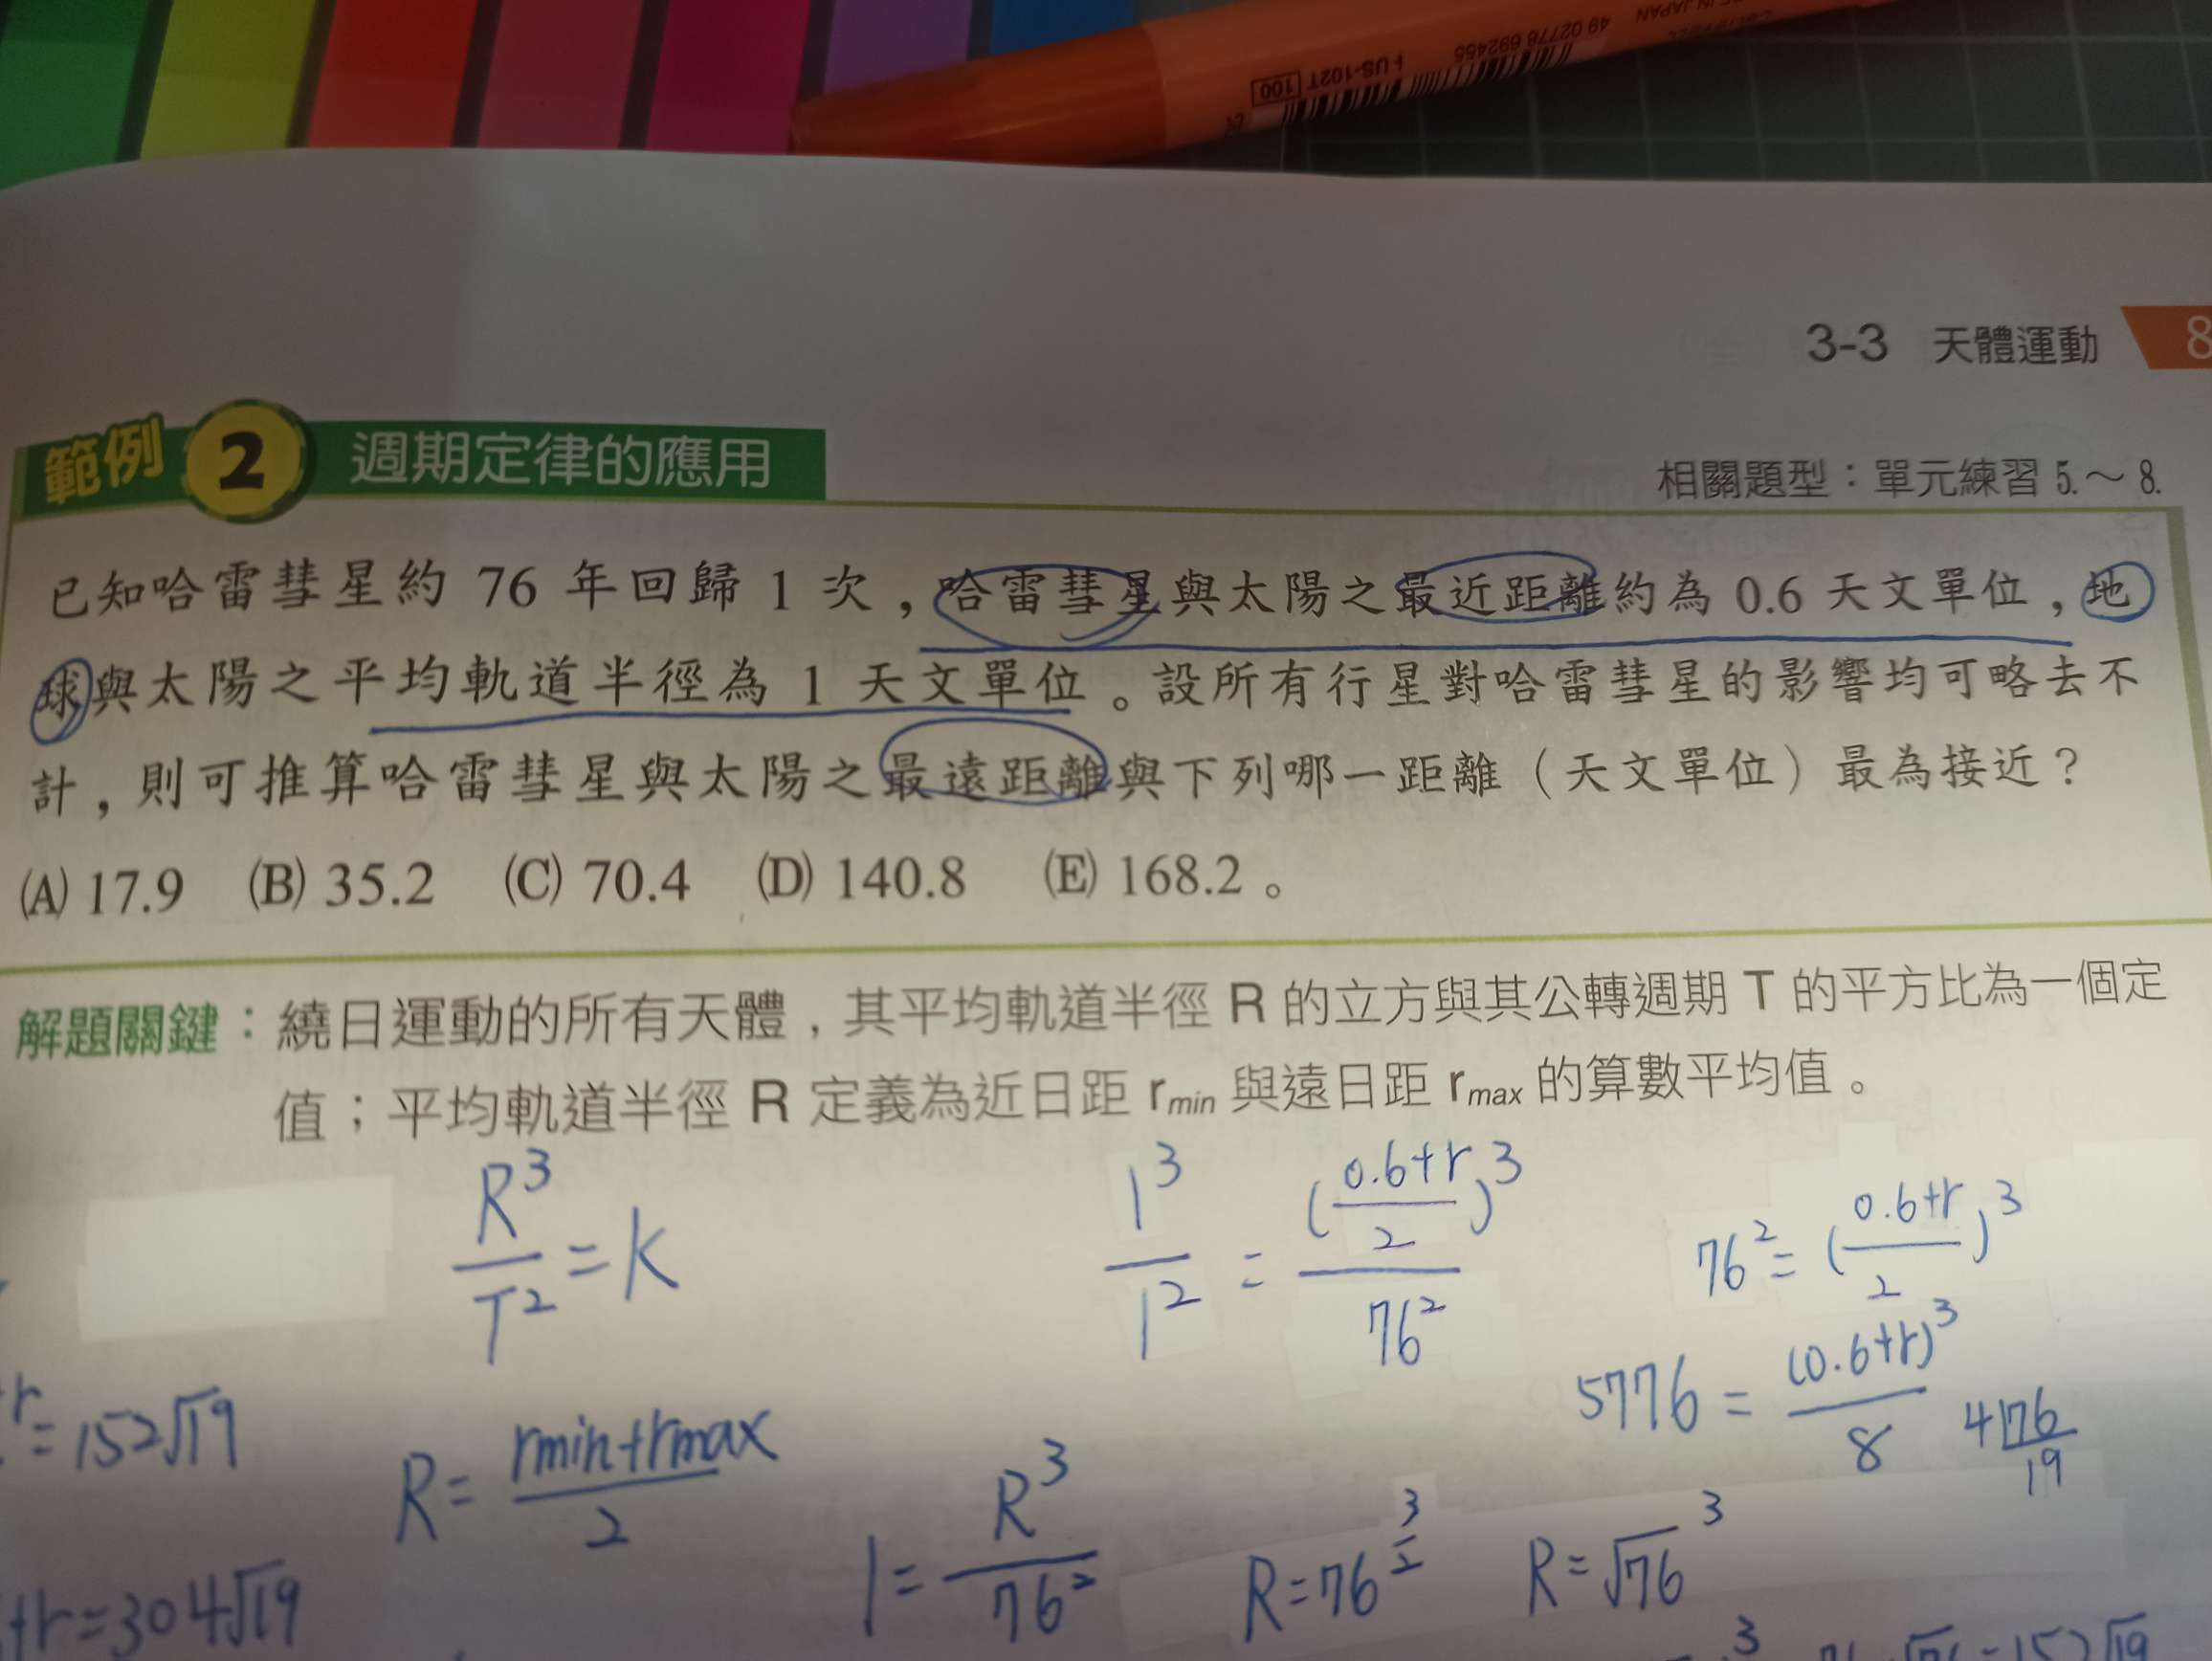 49 02778 692455
US-102T 100
IN JAPAN
3-3 天體運動 8
範例 2 週期定律的應用
相關題型：單元練習 5.～8.
已知哈雷彗星約 76 年回歸 1 次，哈雷彗星與太陽之最近距離約為 0.6 天文單位，地
球與太陽之平均軌道半徑為 1 天文單位。設所有行星對哈雷彗星的影響均可略去不
計，則可推算哈雷彗星與太陽之最遠距離與下列哪一距離（天文單位）最為接近？
(A) 17.9 (B) 35.2 (C) 70.4 (D) 140.8 (E) 168.2。
解題關鍵：繞日運動的所有天體，其平均軌道半徑 R 的立方與其公轉週期 T 的平方比為一個定
值；平均軌道半徑 R 定義為近日距 rmin 與遠日距 rmax 的算數平均值。
R³/T² = K
1³/1² = ((0.6+r)/2)³/76²
76² = ((0.6+r)/2)³
5776 = (0.6+r)³/8
4 76
19
r = 152√19
R = (rmin+rmax)/2
1 = R³/76²
R = 76^(3/2)
R = √76³
+r = 304√19
= 152√19